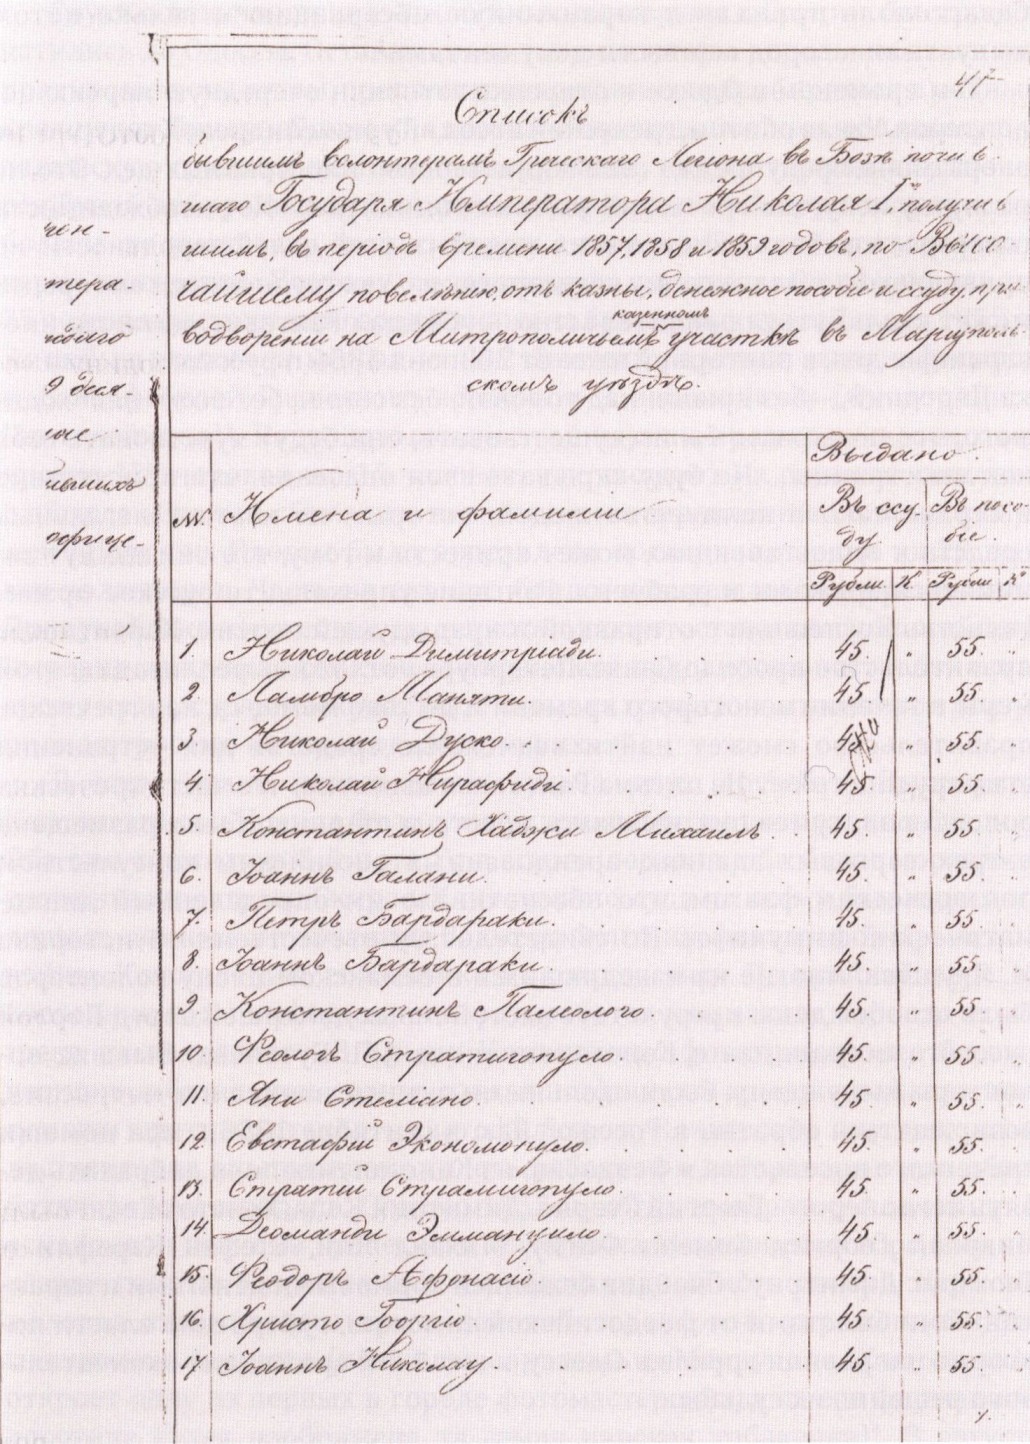 47
Списокъ
бывшимъ волонтерамъ Греческаго Легіона въ Бозѣ почив-
шаго Государя Императора Николая Iго, получив-
шимъ, въ періодъ времени 1857, 1858 и 1859 годовъ, по Высо
чайшему повелѣнію, отъ казны, денежное пособіе и ссуду, при
казенномъ
водвореніи на Митрополичьемъ участкѣ въ Маріуполь-
скомъ уѣздѣ.
чен-
тера-
9 деся-
офице-
Выдано.
№№ Имена и фамиліи Въ ссу- Въ посо-
ду. біе.
Рубли К. Рубли К.
1. Николай Димитріади. 45. " 55.
2. Ламбро Маняти. 45. " 55.
3. Николай Дуско. 45. " 55.
4. Николай 45 " 55.
5. Константинъ Хаджи Михаилъ. 45. " 55.
6. Іоаннъ Галани. 45. " 55.
7. Петръ Бардараки. 45. " 55.
8. Іоаннъ Бардараки 45. " 55.
9. Константинъ Палеолого. 45. " 55.
10. Ѳеологъ Стратигопуло. 45. " 55.
11. Яни Стеліано. 45. " 55.
12. Евстафій Экономопуло. 45. " 55.
13. Стратій Страмигопуло. 45. " 55.
14. Деоманди Эммануило. 45. " 55.
15. Ѳеодоръ Афонасіо. 45. " 55.
16. Христо Гооргіо. 45. " 55.
17. Іоаннъ Николау. 45. " 55.